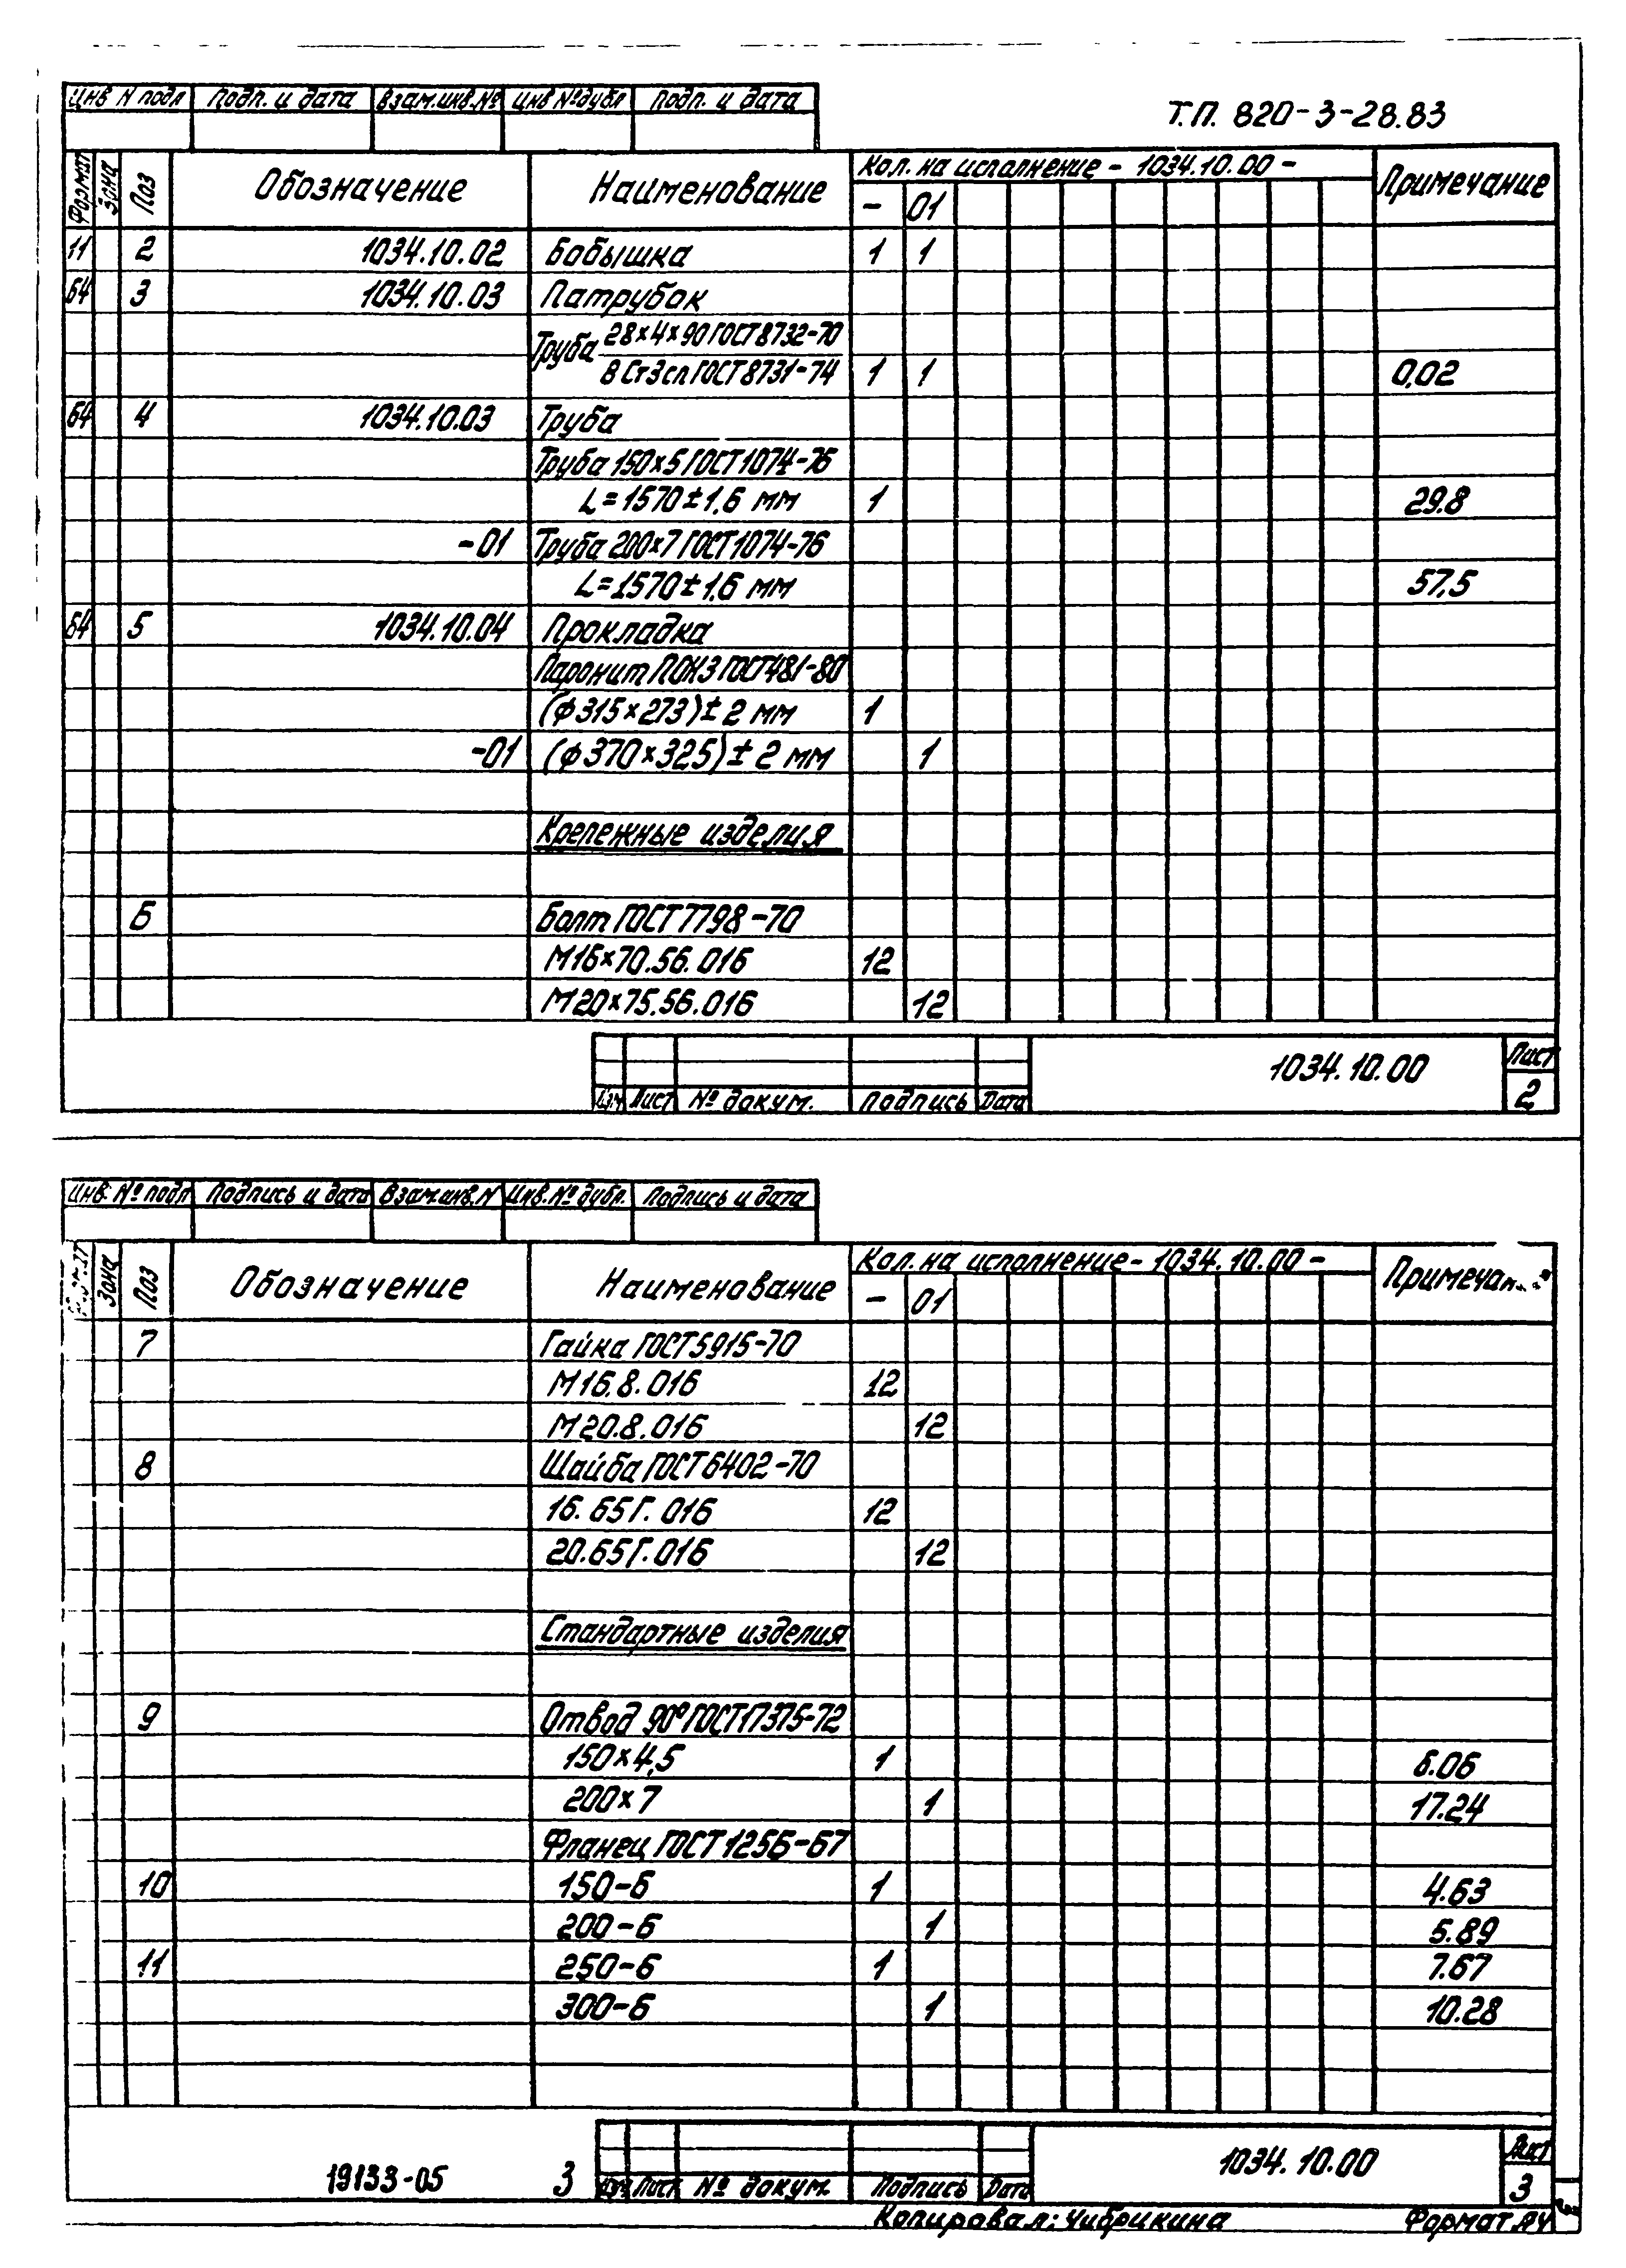 Т.П. 820-3-28.83
Инв N подл Подп. и дата Взам.инв.№ Инв №дубл Подп. и дата
Формат Зона Поз Обозначение Наименование Кол. на исполнение - 1034.10.00 - Примечание
- 01
11 2 1034.10.02 Бобышка 1 1
Б4 3 1034.10.03 Патрубок
Труба 28×4×90 ГОСТ 8732-70
В Ст3сп ГОСТ 8731-74 1 1 0,02
Б4 4 1034.10.03 Труба
Труба 150×5 ГОСТ 1074-76
L=1570±1,6 мм 1 29.8
-01 Труба 200×7 ГОСТ 1074-76
L=1570±1,6 мм 57,5
Б4 5 1034.10.04 Прокладка
Паронит ПОН 3 ГОСТ 481-80
(ф315×273)±2 мм 1
-01 (ф370×325)±2 мм 1
Крепежные изделия
6 Болт ГОСТ 7798-70
М16×70.56.016 12
М20×75.56.016 12
Изм Лист № докум. Подпись Дата 1034.10.00 Лист
2
Инв. № подл Подпись и дата Взам.инв.N Инв.№ дубл. Подпись и дата
Зона Поз Обозначение Наименование Кол. на исполнение - 1034.10.00 -
- 01
7 Гайка ГОСТ 5915-70
М16.8.016 12
М20.8.016 12
8 Шайба ГОСТ 6402-70
16.65Г.016 12
20.65Г.016 12
Стандартные изделия
9 Отвод 90° ГОСТ 17375-72
150×4,5 1 6.06
200×7 1 17.24
Фланец ГОСТ 1255-67
10 150-6 1 4.63
200-6 1 5.89
11 250-6 1 7.67
300-6 1 10.28
Изм Лист № докум. Подпись Дата 1034.10.00 Лист
3
19133-05 3
Копировал: Чибрикина Формат А4